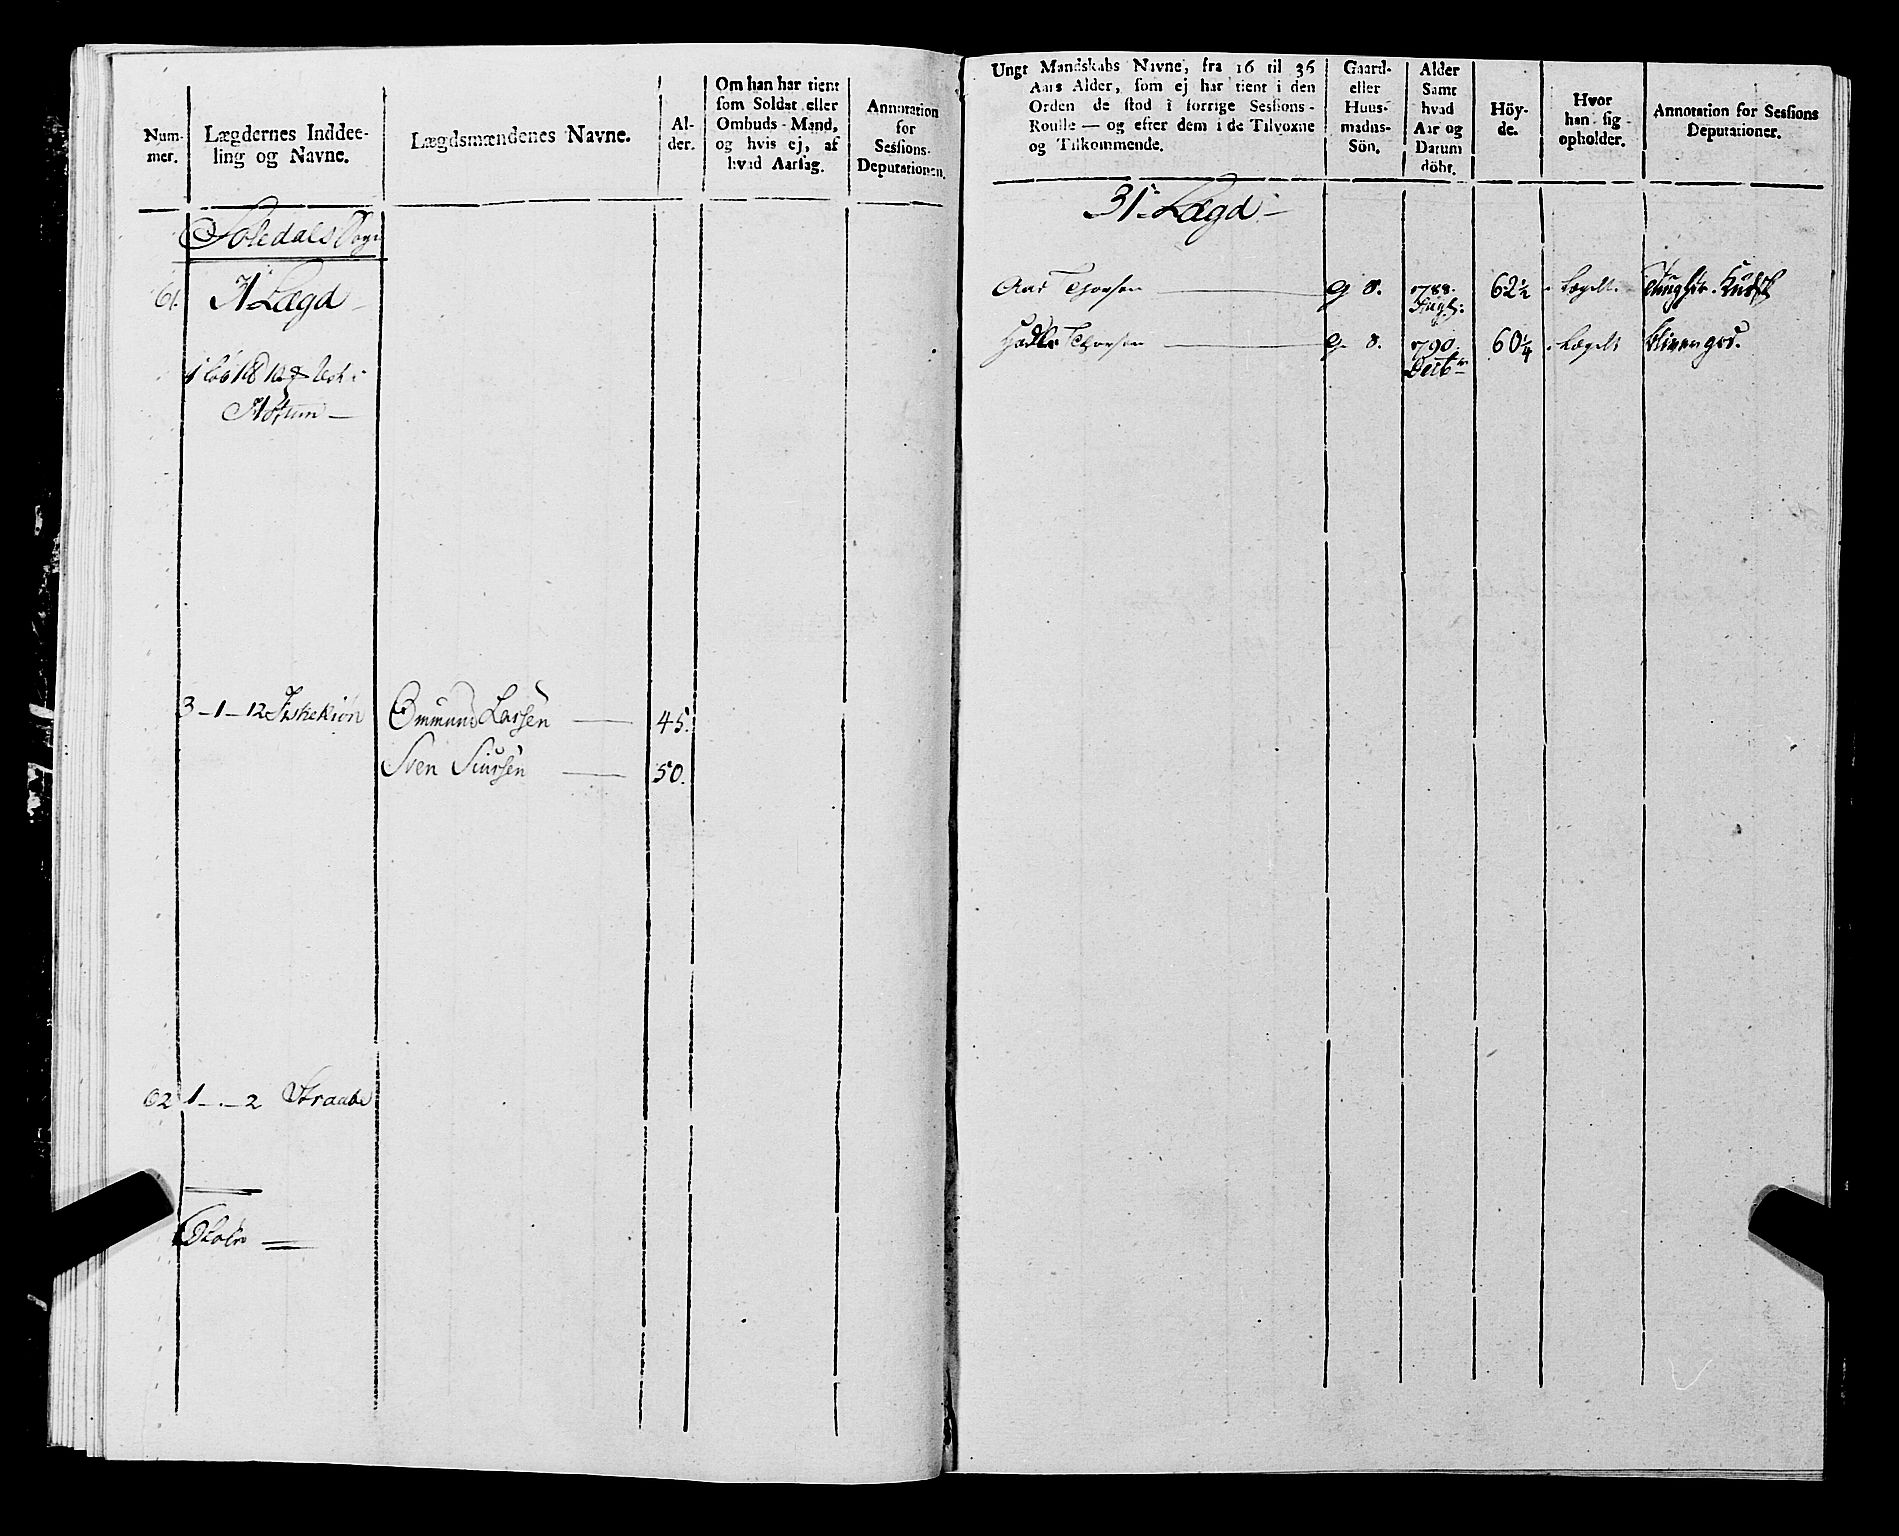 Num-
mer.
Lægdernes Inddee-
ling og Navne.
Lægdsmændenes Navne.
Al-
der.
Om han har tient
som Soldat eller
Ombuds-Mand,
og hvis ej, af
hvad Aarsag.
Annotation
for
Sessions-
Deputationen.
61.
31 Lægd
3-1-12 Fiskekiøn
Ommund Larsen 45.
Sven Siursen 50.
62 1-.-2 Straabe
Ungt Mandskabs Navne, fra 16 til 36
Aars Alder, som ej har tient i den
Orden de stod i forrige Sessions-
Roulle — og efter dem i de Tilvoxne
og Tilkommende.
Gaard-
eller
Huus-
mands-
Sön.
Alder
Samt
hvad
Aar og
Datum
döbt.
Höy-
de.
Hvor
han sig
opholder.
Annotation for Sessions
Deputationer.
31 Lægd
Thorsen — G S. 1788. 62½ i Lægdt.
Thorsen — G S. 1790. 60¼ i Lægdt